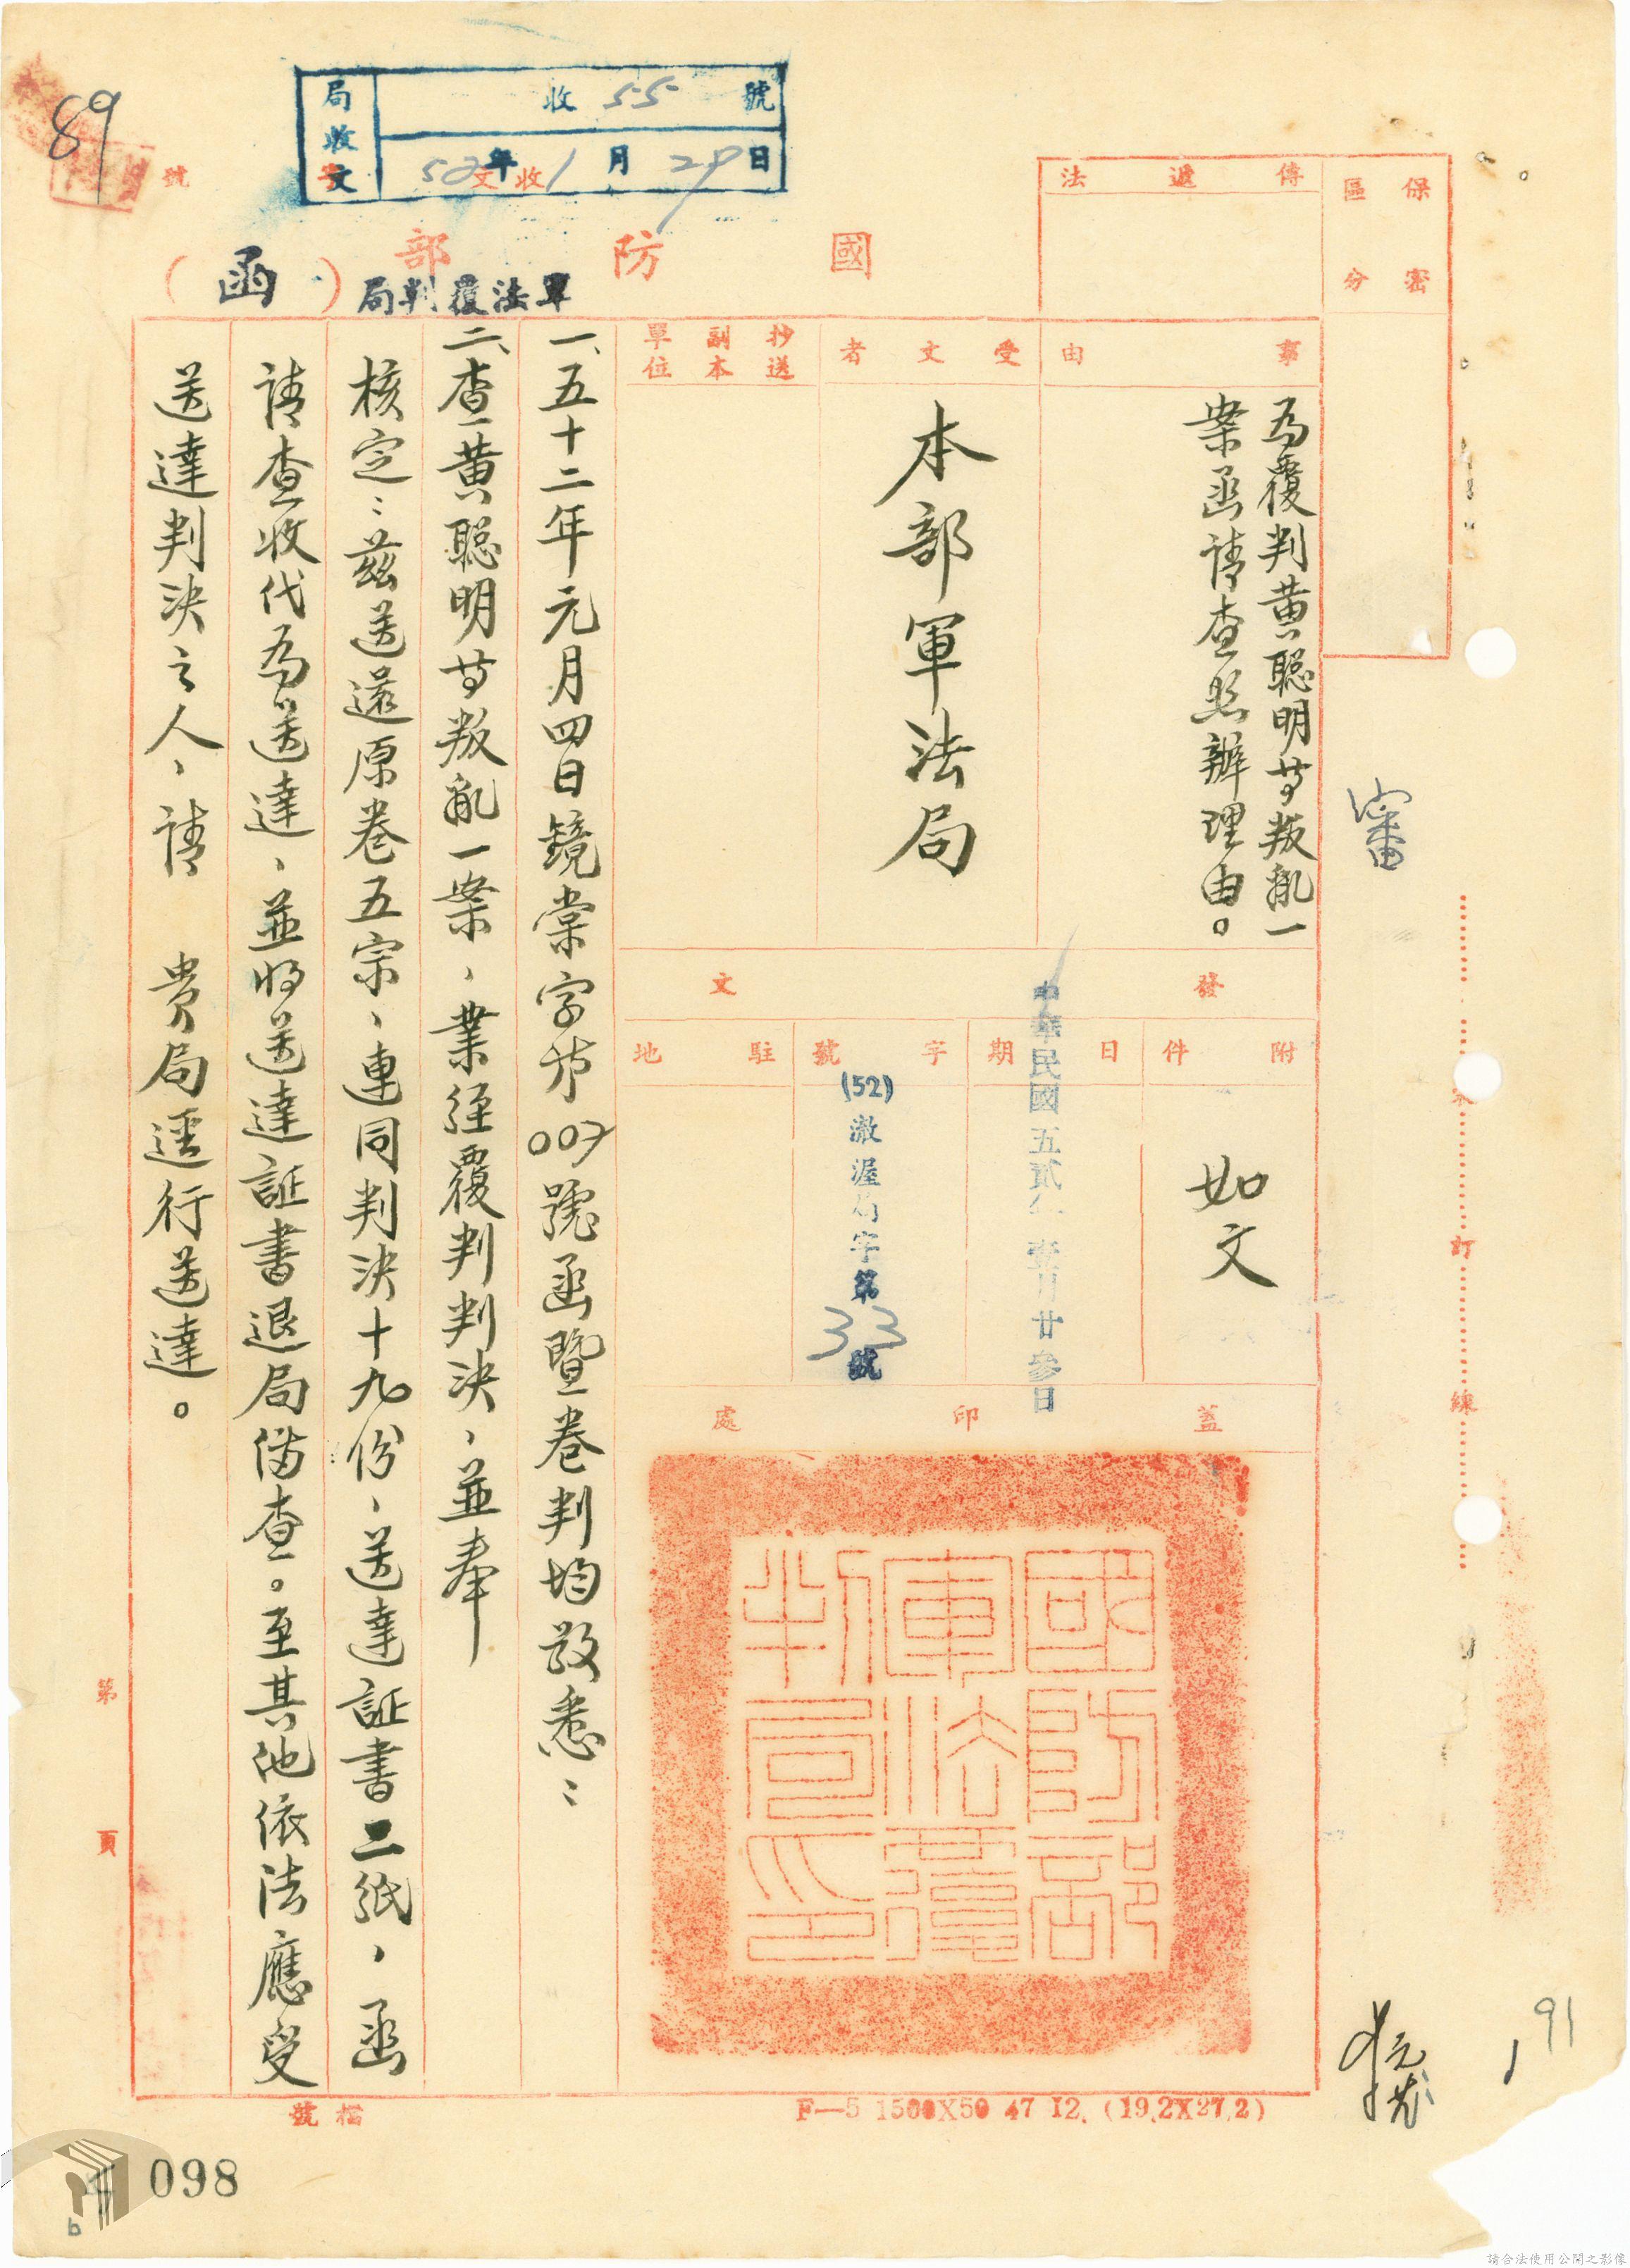 89
號
局收文
收 55 號
52年1月29日
收文
國防部
軍法覆判局
(函)
保密
區分
傳遞法
事由
為覆判黃聰明等叛亂一
案函請查照辦理由。
受文者
本部軍法局
抄送
副本
單位
發文
附件
如文
日期
中華民國五貳年壹月廿參日
字號
(52)
澈渥局字第33號
駐地
蓋印處
國防部
軍法覆
判局印
一、五十二年元月四日鏡棠字第007號函暨卷判均敬悉;
二、查黃聰明等叛亂一案,業經覆判判決,並奉
核定;茲送還原卷五宗、連同判決十九份,送達証書二紙,函
請查收代為送達,並將送達証書退局備查。至其他依法應受
送達判決之人,請 貴局逕行送達。
審
訂
線
第
頁
91
檔號
F—5 1500X50 47 12. (19.2X27.2)
098
b
請合法使用公開之影像